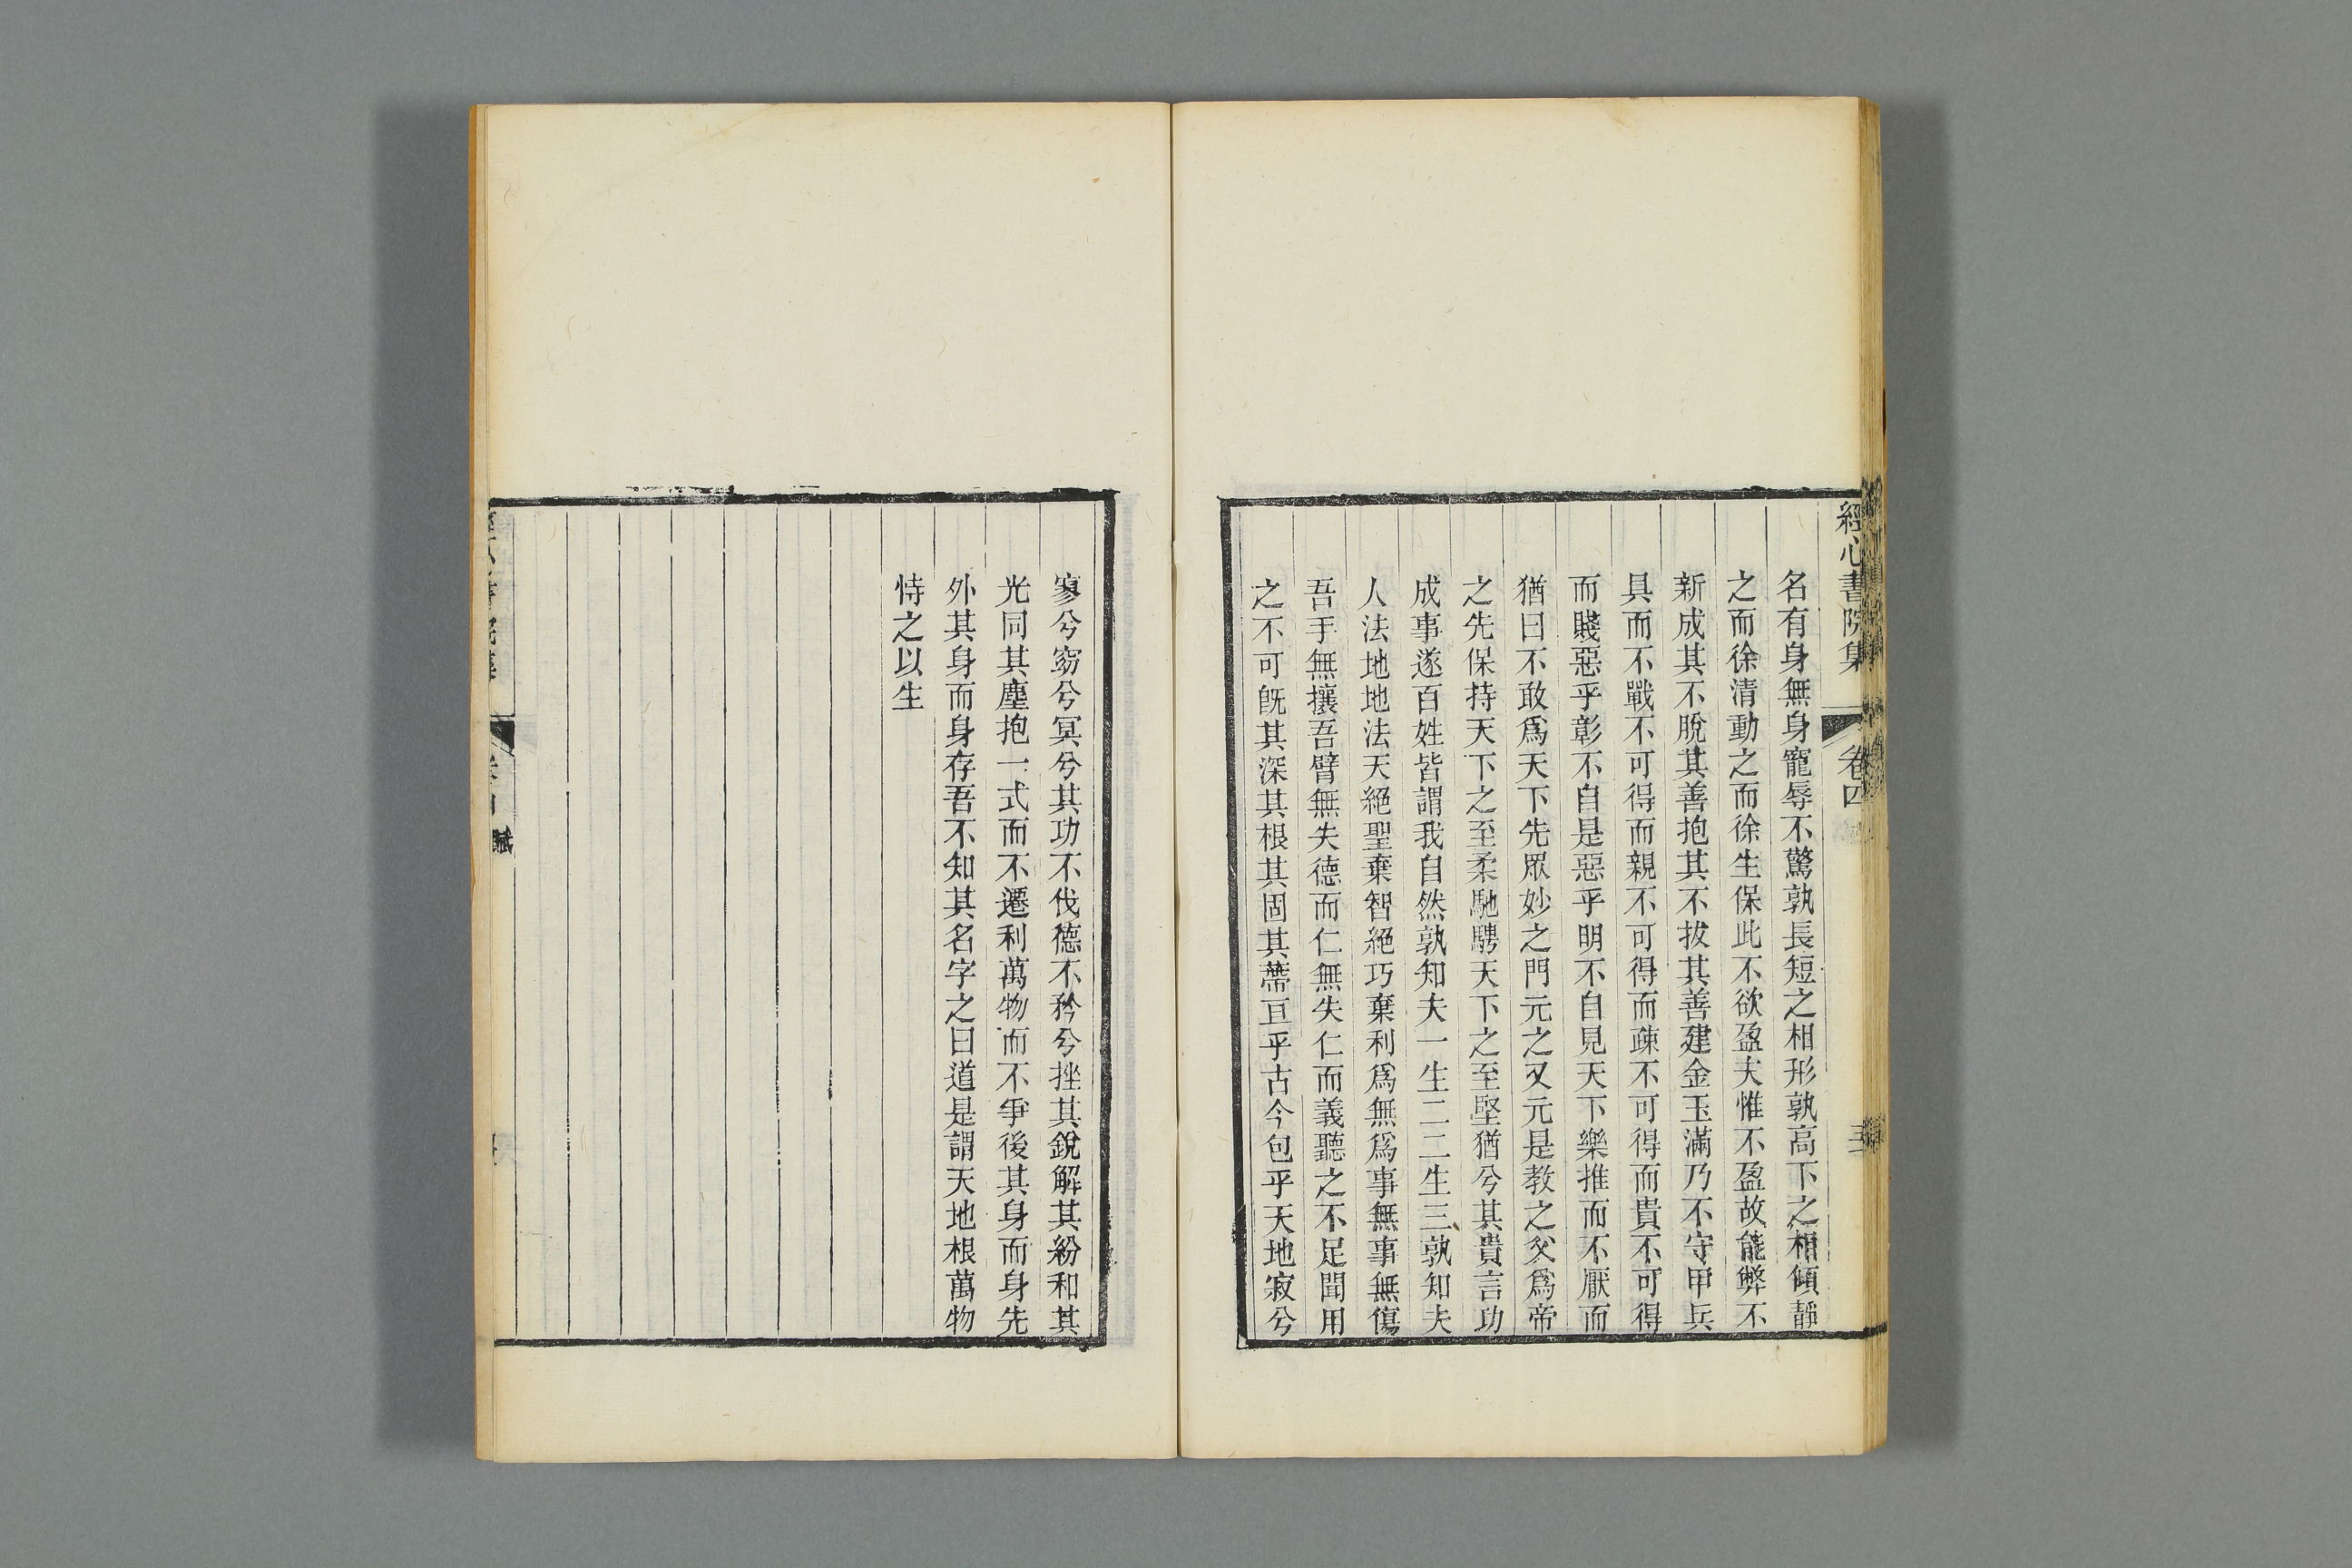 經心書院集 卷四
名有身無身寵辱不驚孰長短之相形孰高下之相傾靜
之而徐清動之而徐生保此不欲盈夫惟不盈故能弊不
新成其不脫其善抱其不拔其善建金玉滿乃不守甲兵
具而不戰不可得而親不可得而疎不可得而貴不可得
而賤惡乎彰不自是惡乎明不自見天下樂推而不厭而
猶曰不敢爲天下先眾妙之門元之又元是教之父爲帝
之先保持天下之至柔馳騁天下之至堅猶兮其貴言功
成事遂百姓皆謂我自然孰知夫一生二二生三孰知夫
人法地地法天絕聖棄智絕巧棄利爲無爲事無事無傷
吾手無攘吾臂無失德而仁無失仁而義聽之不足聞用
之不可旣其深其根其固其蔕亘乎古今包乎天地寂兮
寥兮窈兮冥兮其功不伐德不矜兮挫其銳解其紛和其
光同其塵抱一式而不遷利萬物而不爭後其身而身先
外其身而身存吾不知其名字之曰道是謂天地根萬物
恃之以生